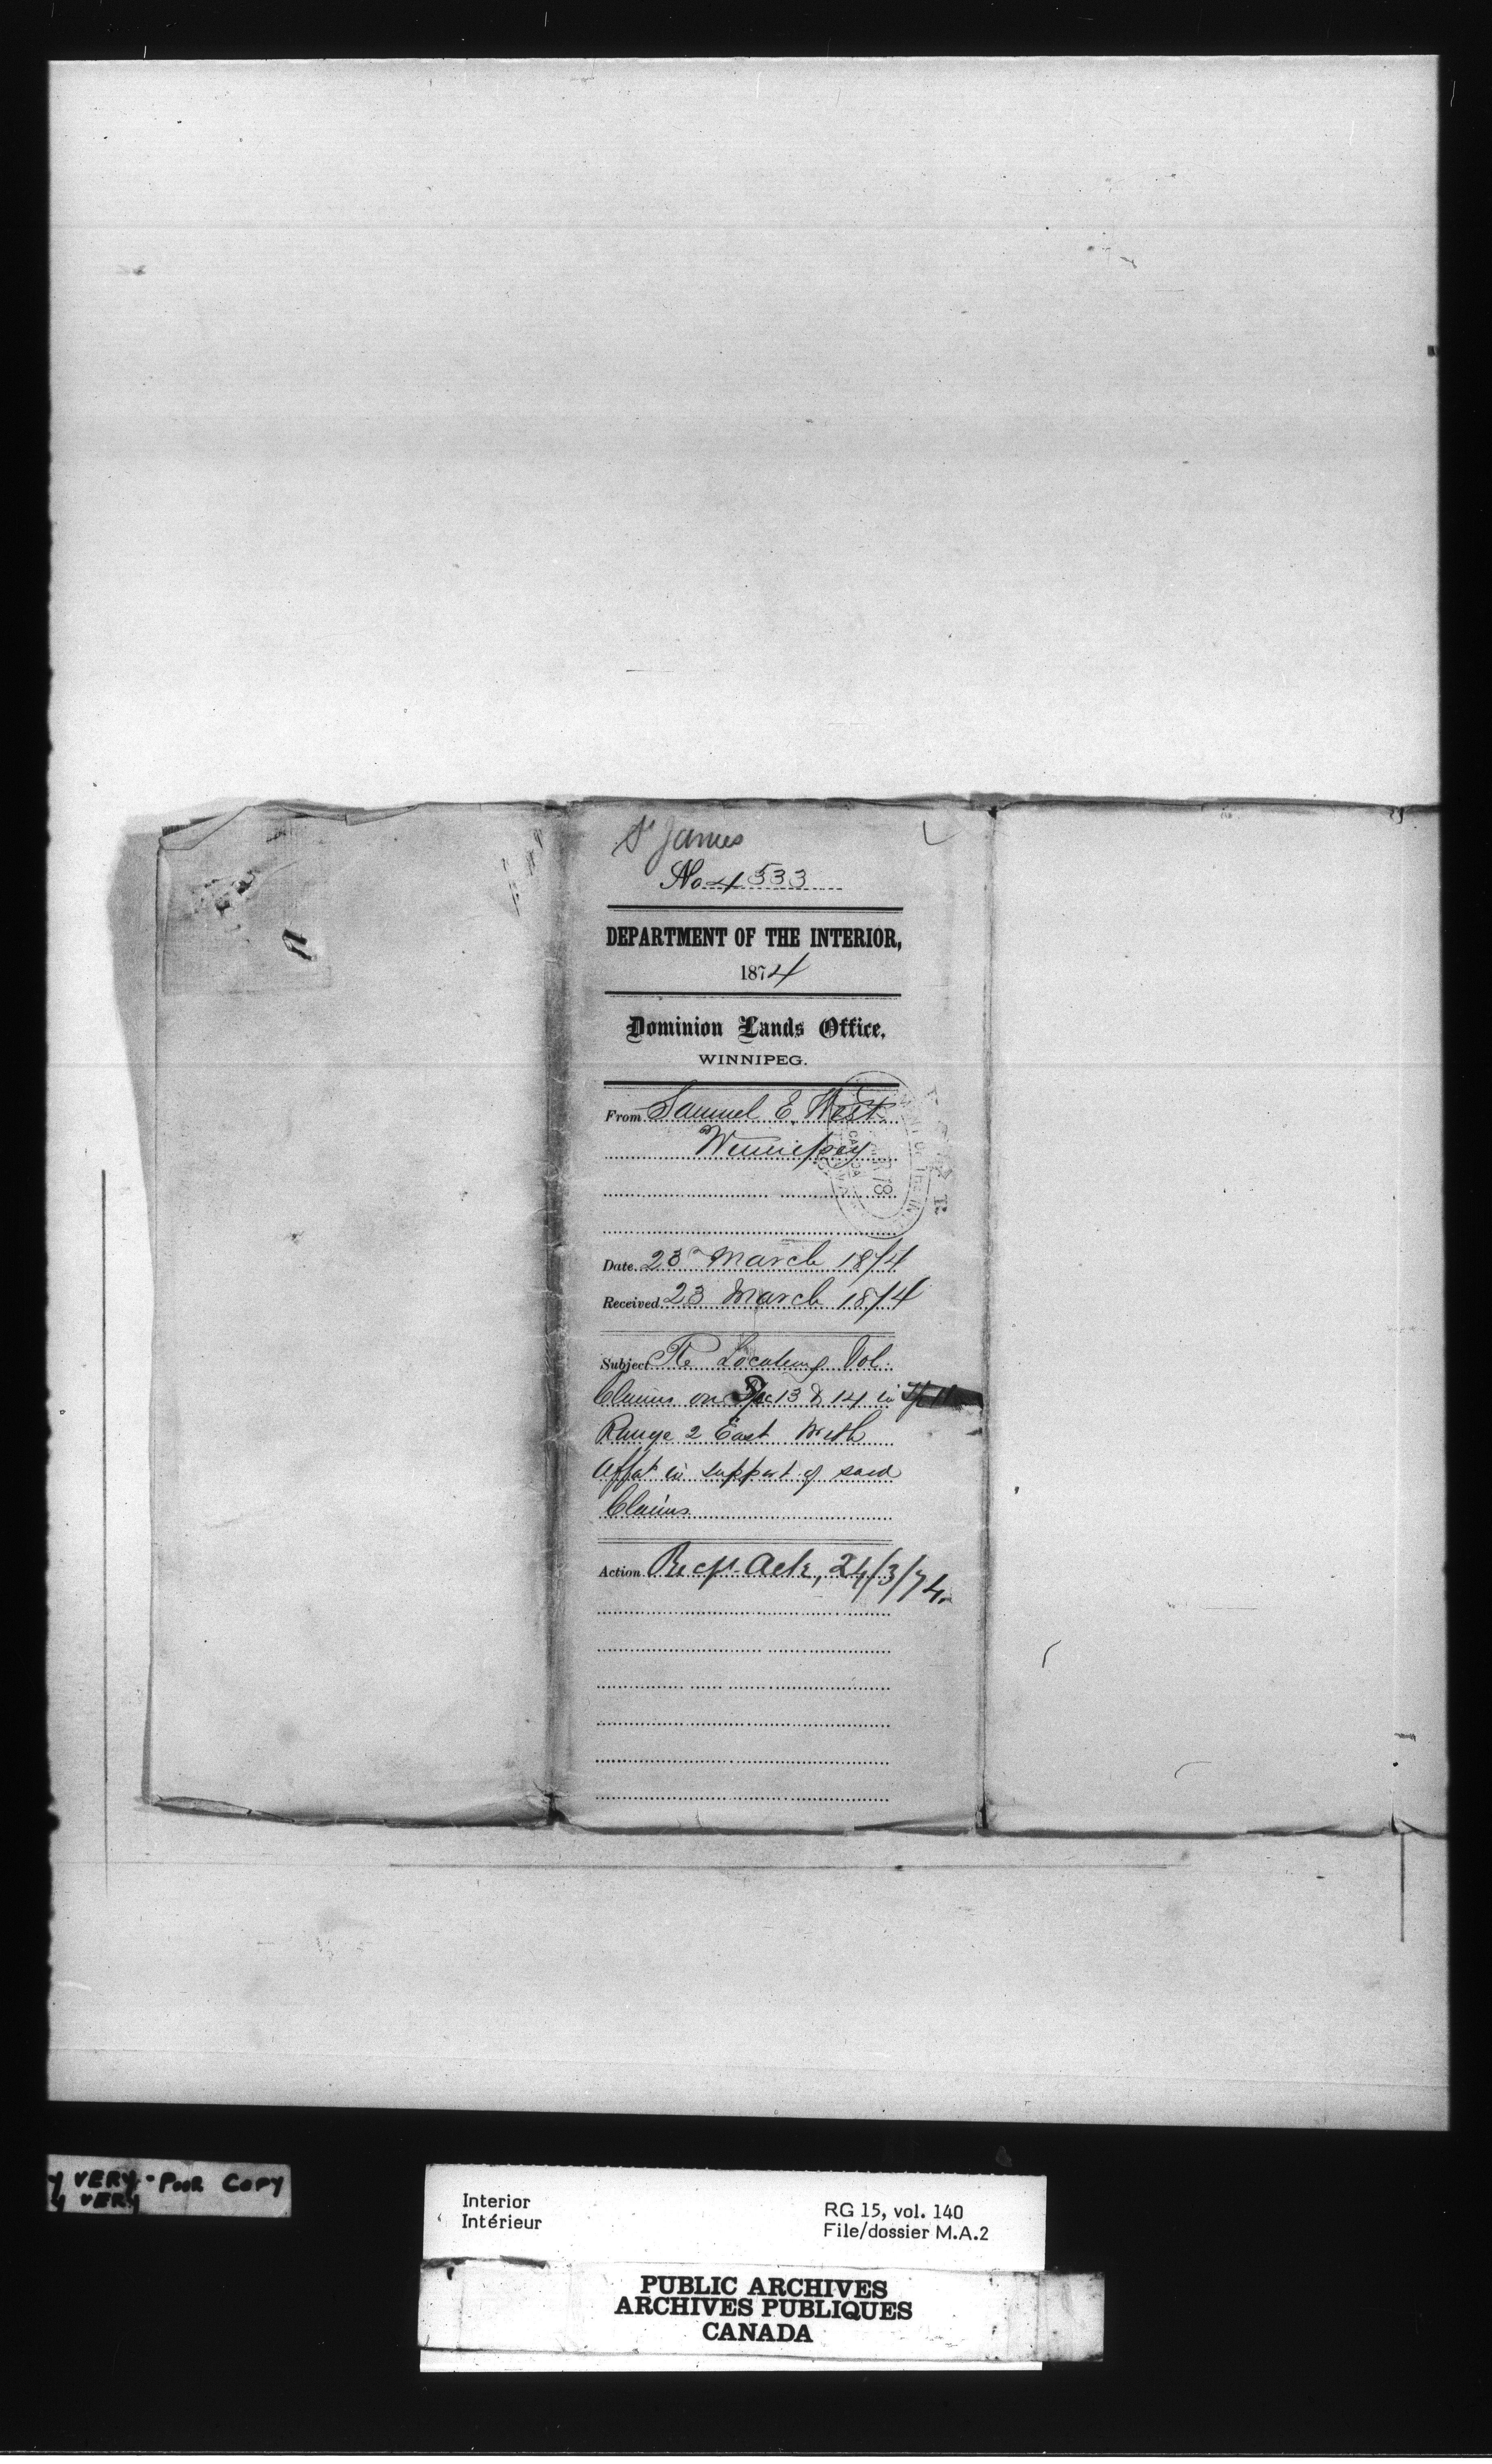 St James
No 4533
DEPARTMENT OF THE INTERIOR,
1874
Dominion Lands Office,
WINNIPEG.
From Samuel E. West
Winnipeg
Date 23 March 1874
Received 23 March 1874
Subject Re Locating Vol.
Claims on Sec 13 & 14 in Tp 11
Range 2 East With
Affat in support of said
Claims
Action Recpt Ack, 24/3/74.
y VERY - POOR COPY
y VERY
Interior
Intérieur
RG 15, vol. 140
File/dossier M.A.2
PUBLIC ARCHIVES
ARCHIVES PUBLIQUES
CANADA